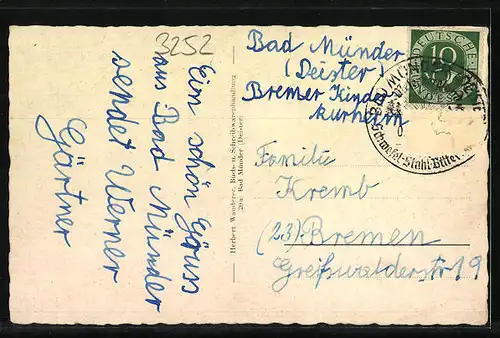 3252
Ein schön Gruss
aus Bad Münder
sendet Werner
Gärtner
Herbert Wanderer, Buch- u. Schreibwarenhandlung
20a) Bad Münder (Deister)
Bad Münder
(Deister)
Bremer Kinder
kurheim
Familie
Kremb
(23) Bremen
Greifswalderstr 19
DEUTSCHE
10
Schwefel-Stahl-Bitter